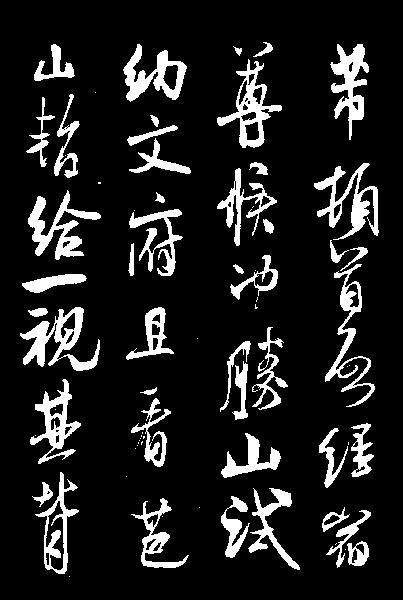 芾頓首啟經宿
尊候沖勝山試
納文府且看芭
山暫給一視其背